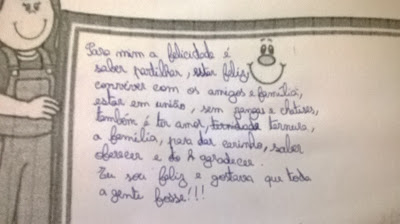 Para mim a felicidade é
saber partilhar, estar feliz,
conviver com os amigos e família,
estar em união, sem zangas e chatises,
também é ter amor, ternidade ternura,
a família, para dar carinho, saber
oferecer e do h agradecer.
Eu sou feliz e gostava que toda
a gente fosse!!!